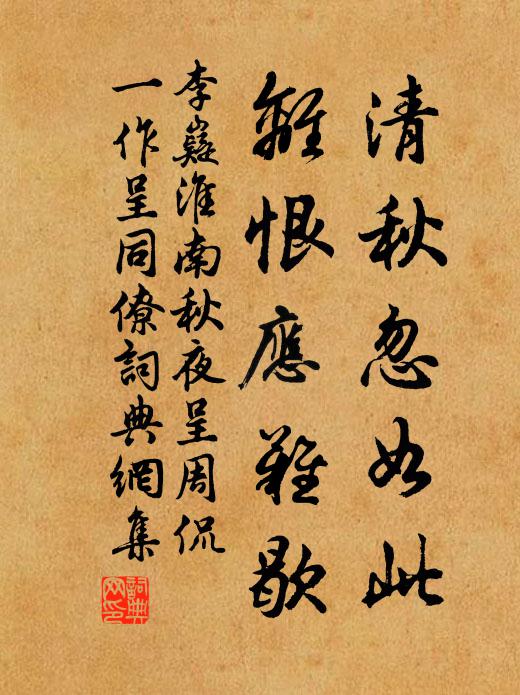 清秋忽如此
離恨應難歇
李嶷淮南秋夜呈周侃
一作呈同僚詞典網集
詞典
网印